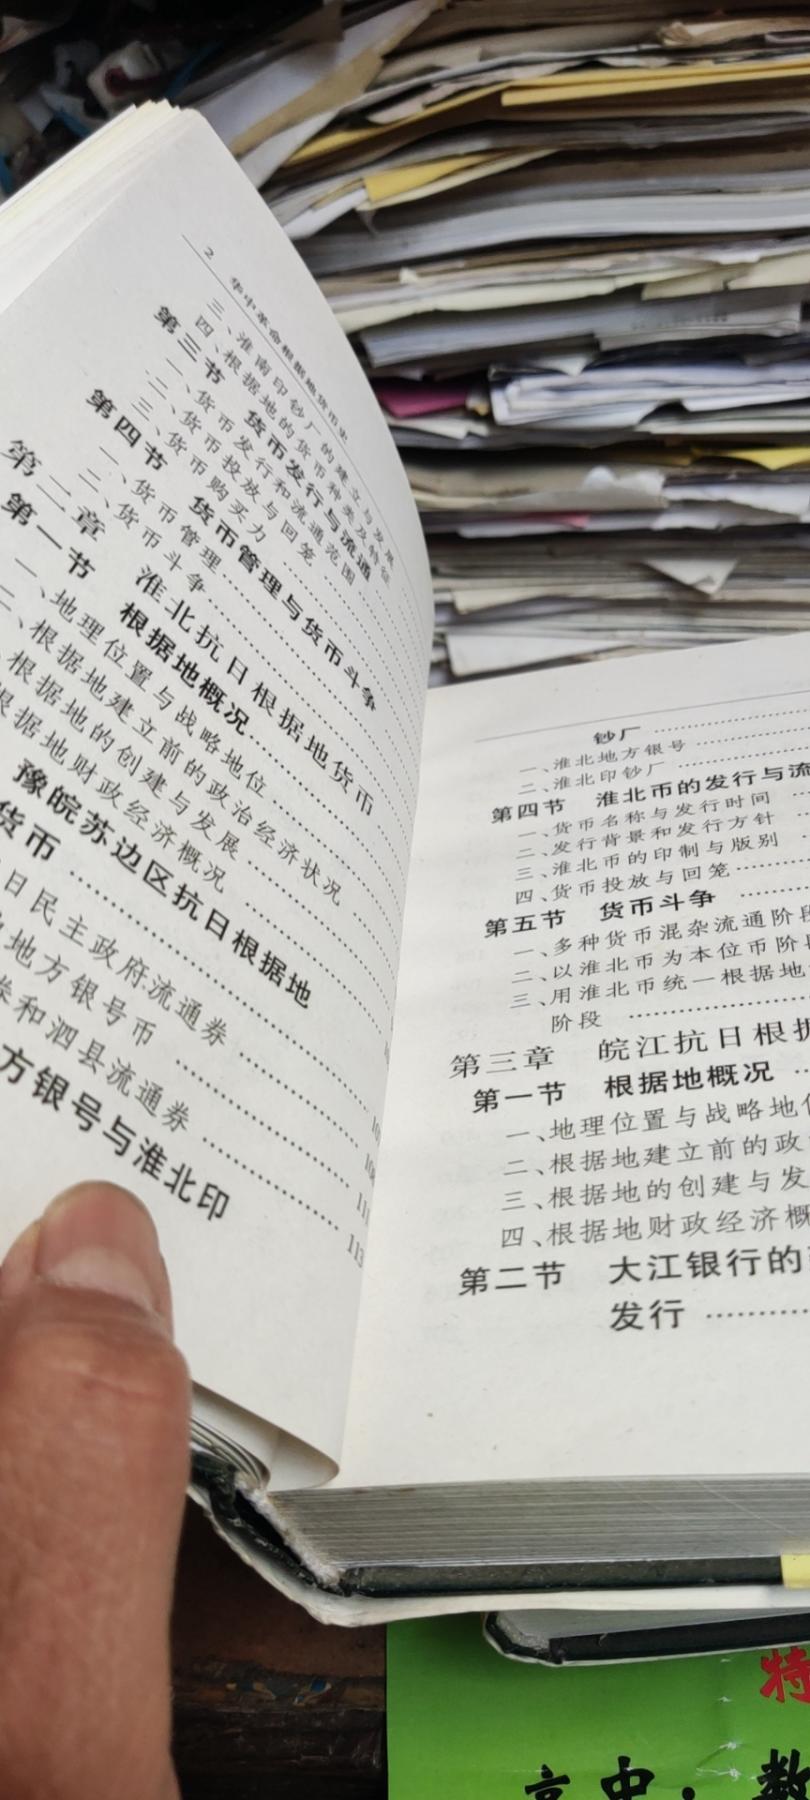 2
华中革命根据地货币史
三、淮南印钞厂的建立与发展
四、根据地的货币种类及特征
第三节 货币发行与流通
一、货币发行和流通范围
二、货币投放与回笼
三、货币购买力
第四节 货币管理与货币斗争
一、货币管理
二、货币斗争
第二章 淮北抗日根据地货币
第一节 根据地概况
一、地理位置与战略地位
二、根据地建立前的政治经济状况
、根据地的创建与发展
根据地财政经济概况
豫皖苏边区抗日根据地
货币
日民主政府流通券
地方银号币
券和泗县流通券
方银号与淮北印
113
钞厂
一、淮北地方银号
二、淮北印钞厂
第四节 淮北币的发行与流
一、货币名称与发行时间
二、发行背景和发行方针
三、淮北币的印制与版别
四、货币投放与回笼
第五节 货币斗争
一、多种货币混杂流通阶段
二、以淮北币为本位币阶段
三、用淮北币统一根据地
阶段
第三章 皖江抗日根据
第一节 根据地概况
一、地理位置与战略地位
二、根据地建立前的政
三、根据地的创建与发
四、根据地财政经济概
第二节 大江银行的
发行
特
高中·数